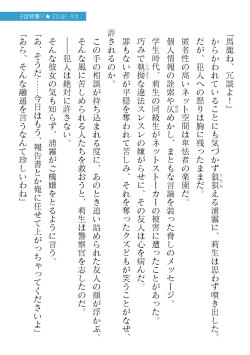 子宮特警リオ★STAR.リオ
「馬鹿ね、冗談よ！」
からかわれていることにも気づかず狼狽える浦霧に、莉生は思わず噴き出した。
だが、犯人への怒りは胸に残ったままだ。
匿名性の高いネット空間は卑怯者の楽園だ。
個人情報の詮索や見せしめ、まともな言論を装った脅しのメッセージ。
学生時代、莉生の同級生がネットストーカーの被害に遭ったことがあった。
巧みで執拗な違法スレスレの嫌がらせに、その友人は心を病んだ。
罪もない者が平穏な暮らしを奪われ、それを奪ったクズどもが笑うことがなぜ、
許されるのか。
この手の相談が持ち込まれる度に、あのとき追い詰められた友人の顔が浮かぶ。
そんな風に苦しめられる人たちを救おうと、莉生は警察官を志したのだ。
――犯人は絶対に許さない。
そんな彼女の気も知らず、浦霧がご機嫌をとるように言う。
「あ、そうだ……今日はもう、報告書とか俺に任せて上がっちゃってくださいよ」
「あら、そんな融通を言うなんて珍しいわね」